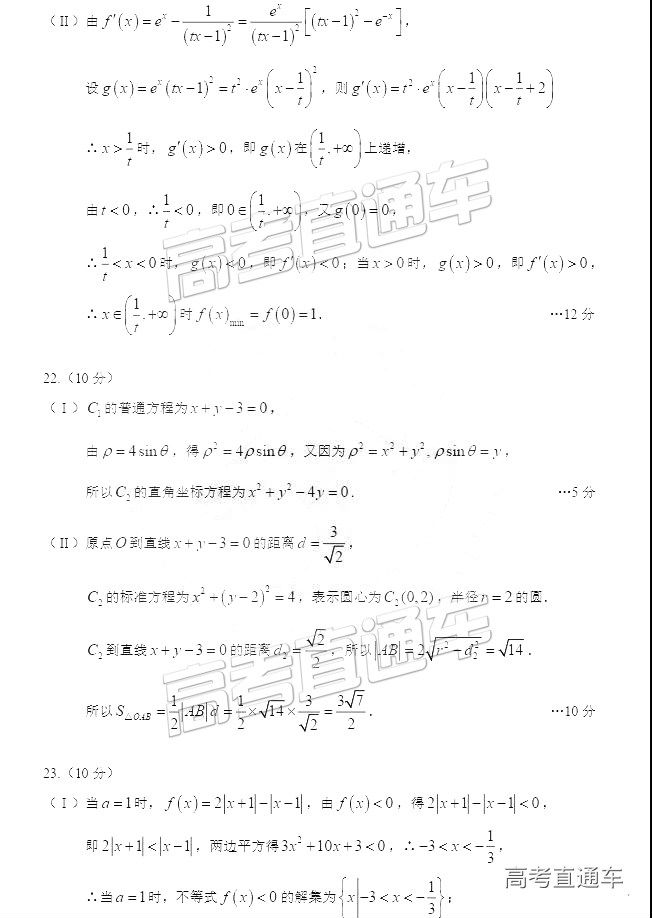 (Ⅱ) 由 f′(x)=eˣ−1/(tx−1)²=eˣ/(tx−1)²[(tx−1)²−e⁻ˣ],
设 g(x)=eˣ(tx−1)²=t²·eˣ(x−1/t)², 则 g′(x)=t²·eˣ(x−1/t)(x−1/t+2)
∴x>1/t时, g′(x)>0, 即 g(x)在(1/t.+∞)上递增,
由t<0, ∴1/t<0, 即0∈(1/t.+∞), 又g(0)=0,
∴1/t<x<0时, g(x)<0, 即 f′(x)<0; 当x>0时, g(x)>0, 即 f′(x)>0,
∴x∈(1/t.+∞)时 f(x)min=f(0)=1. …12 分
22.(10 分)
(Ⅰ) C₁的普通方程为x+y−3=0,
由ρ=4sinθ, 得ρ²=4ρsinθ, 又因为ρ²=x²+y², ρsinθ=y,
所以C₂的直角坐标方程为x²+y²−4y=0. …5 分
(Ⅱ) 原点O到直线x+y−3=0的距离d=3/√2,
C₂的标准方程为x²+(y−2)²=4, 表示圆心为C₂(0,2), 半径r=2的圆.
C₂到直线x+y−3=0的距离d₂=√2/2, 所以|AB|=2√(r²−d₂²)=√14.
所以S△OAB=1/2|AB|d=1/2×√14×3/√2=3√7/2. …10 分
23.(10 分)
(Ⅰ) 当a=1时, f(x)=2|x+1|−|x−1|, 由f(x)<0, 得2|x+1|−|x−1|<0,
即2|x+1|<|x−1|, 两边平方得3x²+10x+3<0, ∴−3<x<−1/3,
∴当a=1时, 不等式f(x)<0的解集为{x|−3<x<−1/3};
高考直通车
高考直通车
高考直通车